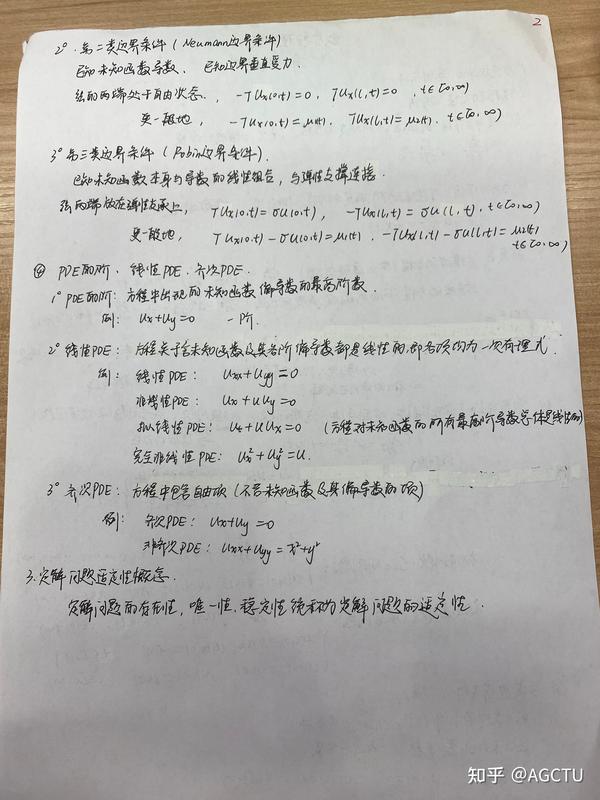 2
2°. 第二类边界条件 (Neumann边界条件)
已知未知函数导数、已知边界垂直受力.
弦的两端处于自由状态., -Tux(0,t)=0, Tux(l,t)=0, t∈[0,∞)
更一般地, -Tux(0,t)=μ1(t), Tux(l,t)=μ2(t). t∈[0,∞)
3° 第三类边界条件 (Robin边界条件).
已知未知函数本身与导数的线性组合, 与弹性支撑连接.
弦两端放在弹性支承上, Tux(0,t)=σu(0,t), -Tux(l,t)=σu(l,t). t∈[0,∞)
更一般地, Tux(0,t)-σu(0,t)=μ1(t). -Tux(l,t)-σu(l,t)=μ2(t)
t∈[0,∞)
④ PDE的阶、线性PDE、齐次PDE.
1° PDE的阶: 方程中出现的未知函数偏导数的最高阶数.
例: ux+uy=0 一阶.
2° 线性PDE: 方程关于未知函数及其各阶偏导数都是线性的,即各项均为一次有理式.
例: 线性PDE: uxx+uyy=0
非线性PDE: ux+uuy=0
拟线性PDE: ut+uux=0 (方程对未知函数的所有最高阶导数总体是线性的)
完全非线性PDE: ux²+uy²=u.
3° 齐次PDE: 方程中包含自由项 (不含未知函数及其偏导数的项)
例: 齐次PDE: ux+uy=0
非齐次PDE: uxx+uyy=x²+y²
3. 定解问题适定性概念.
定解问题的存在性, 唯一性, 稳定性统称为定解问题的适定性.
知乎 @AGCTU